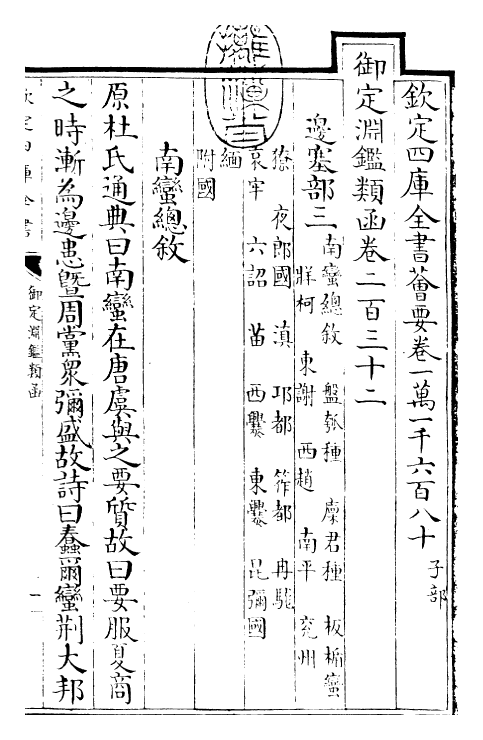 欽定四庫全書薈要卷一萬一千六百八十 子部
御定淵鑑類函卷二百三十二
邊塞部三
南蠻總敘 盤瓠種 廩君種 板楯蠻
牂柯 東謝 西趙 南平 兖州
獠 夜郎國 滇 邛都 筰都 冉駹
哀牢 六詔 苗 西爨 東爨 昆彌國
緬
附國
南蠻總敘
原杜氏通典曰南蠻在唐虞與之要質故曰要服夏商
之時漸為邊患暨周黨衆彌盛故詩曰蠢爾蠻荆大邦
欽定四庫全書
御定淵鑑類函
一